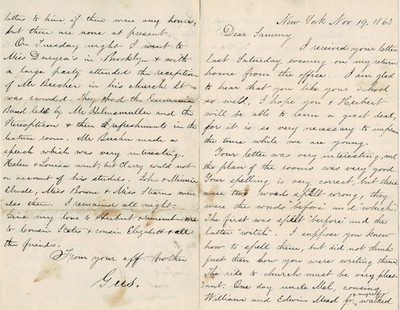 New York Nov 19, 1863
Dear Sammy
I received your letter
last Saturday evening on my return
home from the office. I am glad
to hear that you like your school
so well, I hope you & Herbert
will be able to learn a great deal,
for it is so very necessary to improve
the time while we are young.
Your letter was very interesting, and
the plan of the rooms was very good.
Your spelling, is very correct, but there
are two words spelt wrong, they
were the words "before" and "which".
The first was spelt "befor" and the
latter "witch". I suppose you knew
how to spell them, but did not think
just then how you were writing them.
The ride to church must be very pleas-
ant. One day uncle Mel, cousins
William and Edwin Mead & walked
letter to him if there were any home,
but there are none at present.
On Tuesday night I went to
Miss Duryea's in Brooklyn & with
a large party attended the reception
of Mr Beecher in his church. It
was crowded. They had the
band led by Mr Helmsmuller and the
Reception & then refreshments in the
lecture room. Mr Beecher made a
speech which was very interesting.
Helen & Louisa went, but Clary could not
on account of his studies. John & Minnie
Clude, Miss Brown & Miss Stearns were
also there. I remained all night.
Give my love to Herbert & remember me
to Cousin Kate & cousin Elizabeth & all
the friends.
From your aff brother
Gus.